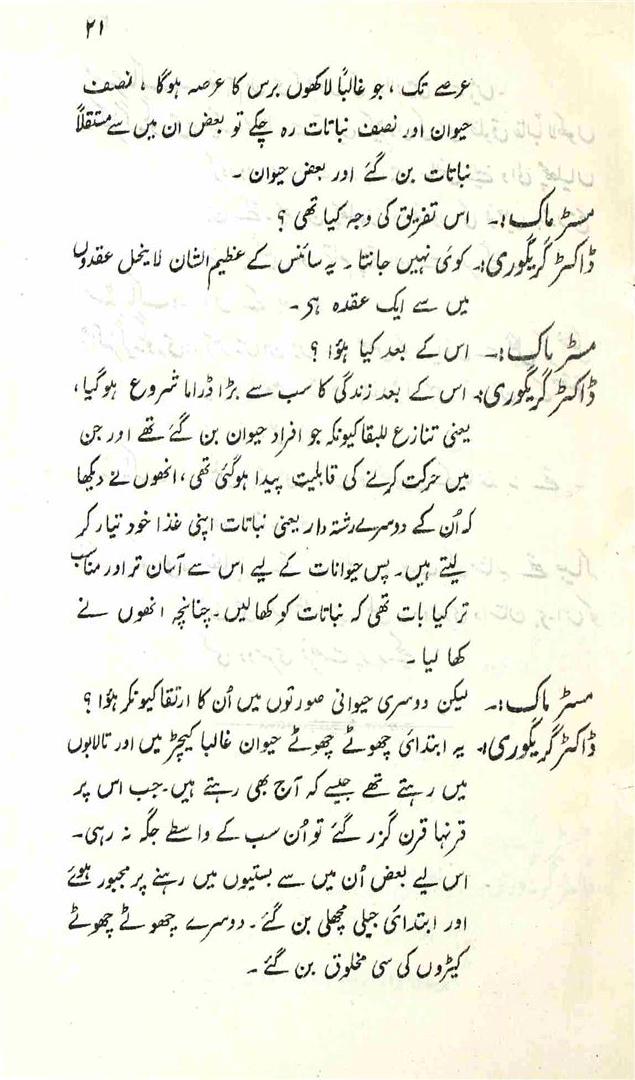 ۲۱
عرصے تک، جو غالباً لاکھوں برس کا عرصہ ہوگا، نصف
حیوان اور نصف نباتات رہ چکے تو بعض ان میں سے مستقلاً
نباتات بن گئے اور بعض حیوان۔
مسٹر ماک:۔ اس تفریق کی وجہ کیا تھی؟
ڈاکٹر گریگوری:۔ کوئی نہیں جانتا۔ یہ سائنس کے عظیم الشان لا ینحل عقدوں
میں سے ایک عقدہ ہی۔
مسٹر ماک:۔ اس کے بعد کیا ہؤا؟
ڈاکٹر گریگوری:۔ اس کے بعد زندگی کا سب سے بڑا ڈراما شروع ہوگیا،
یعنی تنازع للبقا کیونکہ جو افراد حیوان بن گئے تھے اور جن
میں حرکت کرنے کی قابلیت پیدا ہوگئی تھی، انھوں نے دیکھا
کہ اُن کے دوسرے رشتہ دار یعنی نباتات اپنی غذا خود تیار کر
لیتے ہیں۔ پس حیوانات کے لیے اس سے آسان تر اور مناسب
تر کیا بات تھی کہ نباتات کو کھالیں۔ چنانچہ انھوں نے
کھا لیا۔
مسٹر ماک:۔ لیکن دوسری حیوانی صورتوں میں اُن کا ارتقا کیونکر ہؤا؟
ڈاکٹر گریگوری:۔ یہ ابتدائی چھوٹے چھوٹے حیوان غالباً کیچڑ میں اور تالابوں
میں رہتے تھے جیسے کہ آج بھی رہتے ہیں۔ جب اس پر
قرنہا قرن گزر گئے تو اُن سب کے واسطے جگہ نہ رہی۔
اس لیے بعض اُن میں سے بستیوں میں رہنے پر مجبور ہوئے
اور ابتدائی جیلی مچھلی بن گئے۔ دوسرے چھوٹے چھوٹے
کیڑوں کی سی مخلوق بن گئے۔